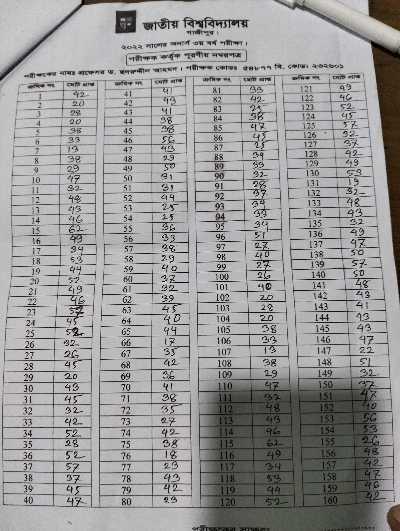 জাতীয় বিশ্ববিদ্যালয়
গাজীপুর।
২০২২ সালের অনার্স ৩য় বর্ষ পরীক্ষা।
পরীক্ষক কর্তৃক পূরণীয় নম্বরপত্র
ক্রমিক নং মোট প্রাপ্ত ক্রমিক নং মোট প্রাপ্ত ক্রমিক নং মোট প্রাপ্ত ক্রমিক নং মোট প্রাপ্ত
1 42 41 41 81 33 121 49
2 20 42 43 82 42 122 46
3 28 43 41 83 25 123 52
4 20 44 38 84 38 124 45
5 38 45 38 85 47 125 57
6 33 46 56 86 45 126 32
7 13 47 43 87 25 127 37
8 38 48 29 88 39 128 42
9 29 49 50 89 33 129 49
10 47 50 31 90 32 130 53
11 32 51 31 91 28 131 19
12 48 52 44 92 37 132 32
13 43 53 25 93 34 133 48
14 46 54 25 94 33 134 43
15 62 55 36 95 34 135 32
16 49 56 33 96 51 136 49
17 34 57 38 97 27 137 47
18 53 58 29 98 40 138 50
19 44 59 40 99 27 139 57
20 52 60 37 100 26 140 50
21 49 61 32 101 40 141 48
22 46 62 39 102 20 142 43
23 57 63 45 103 28 143 41
24 45 64 40 104 20 144 43
25 52 65 44 105 38 145 43
26 32 66 17 106 33 146 47
27 26 67 35 107 13 147 22
28 45 68 42 108 38 148 51
29 20 69 36 109 29 149 32
30 43 70 41 110 47 150 37
31 45 71 38 111 32 151 47
32 32 72 35 112 48 152 40
33 42 73 27 113 43 153 56
34 52 74 42 114 46 154 53
35 28 75 38 115 62 155 26
36 52 76 18 116 49 156 48
37 57 77 23 117 34 157 42
38 37 78 43 118 53 158 47
39 45 79 42 119 44 159 46
40 47 80 23 120 52 160 42